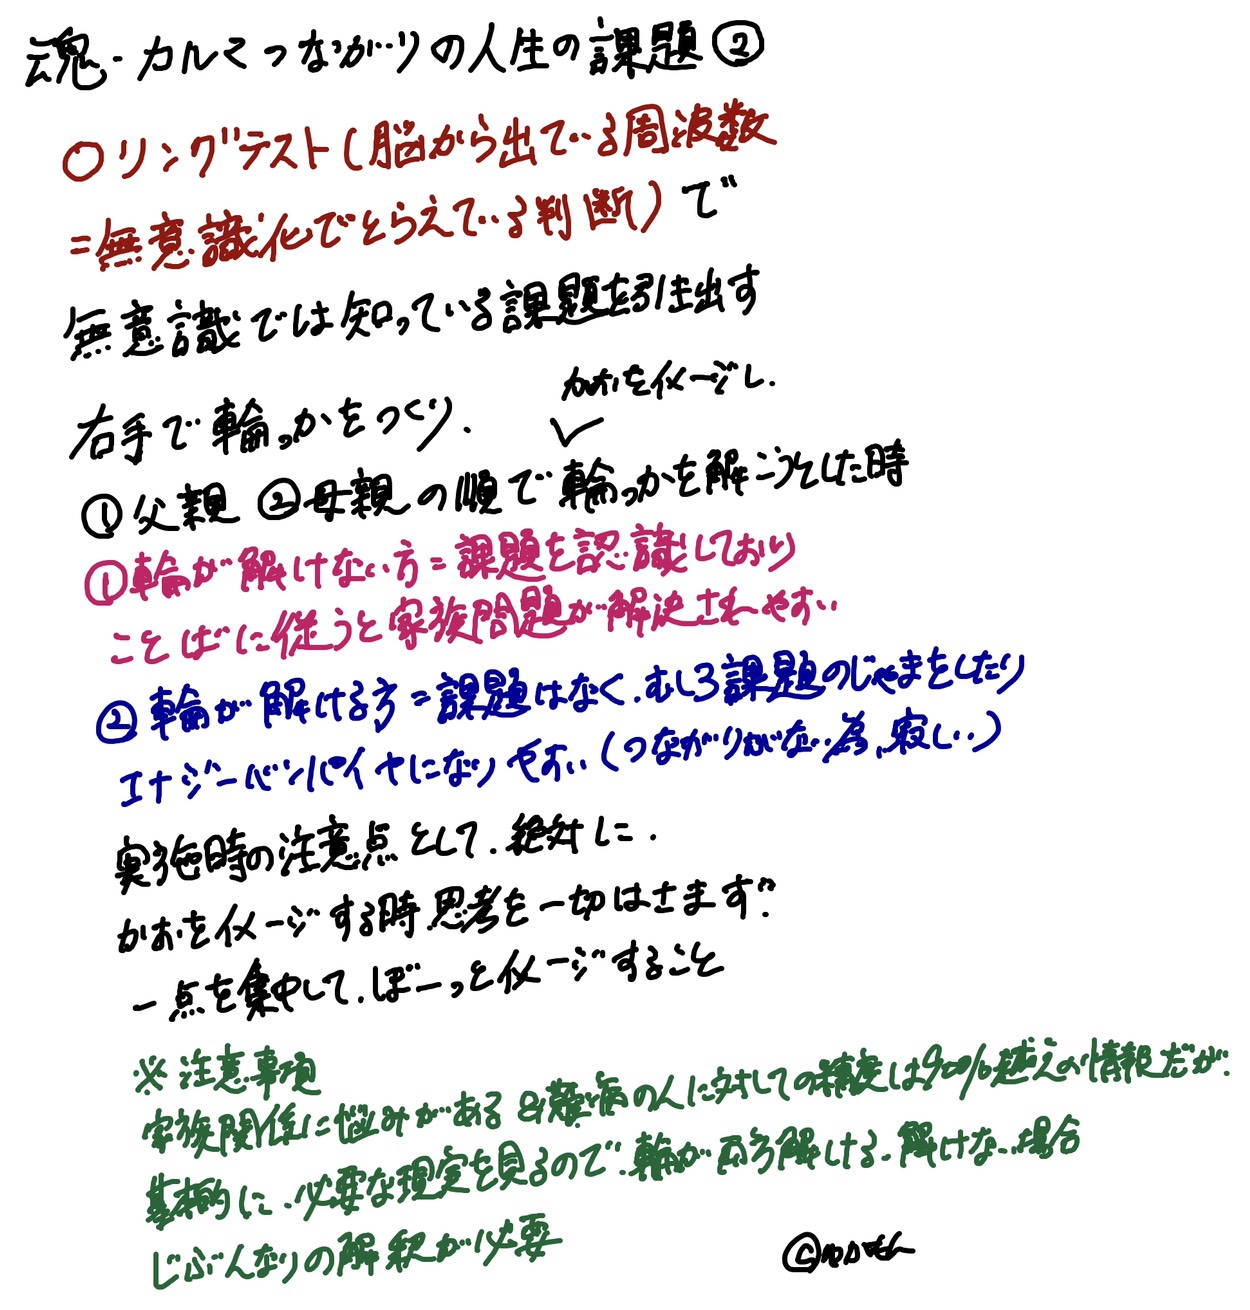 魂・カルマつながりの人生の課題②
○リングテスト(脳から出ている周波数
=無意識化でとらえている判断)で
無意識では知っている課題を引き出す
かおをイメージし、
右手で輪っかをつくり、
①父親 ②母親の順で輪っかを解こうとした時
①輪が解けない方=課題を認識しており
ことばに従うと家族問題が解決されやすい
②輪が解ける方=課題はなく、むしろ課題のじゃまをしたり
エナジーバンパイヤになりやすい(つながりがない為、寂しい)
実施時の注意点として、絶対に、
かおをイメージする時、思考を一切はさまず、
一点を集中して、ぼーっとイメージすること
※注意事項
家族関係に悩みがある&難病の人に対しての精度は90%越えの情報だが、
基本的に、必要な現実を見るので、輪が両方解ける、解けない場合
じぶんなりの解釈が必要
©ゆかもん